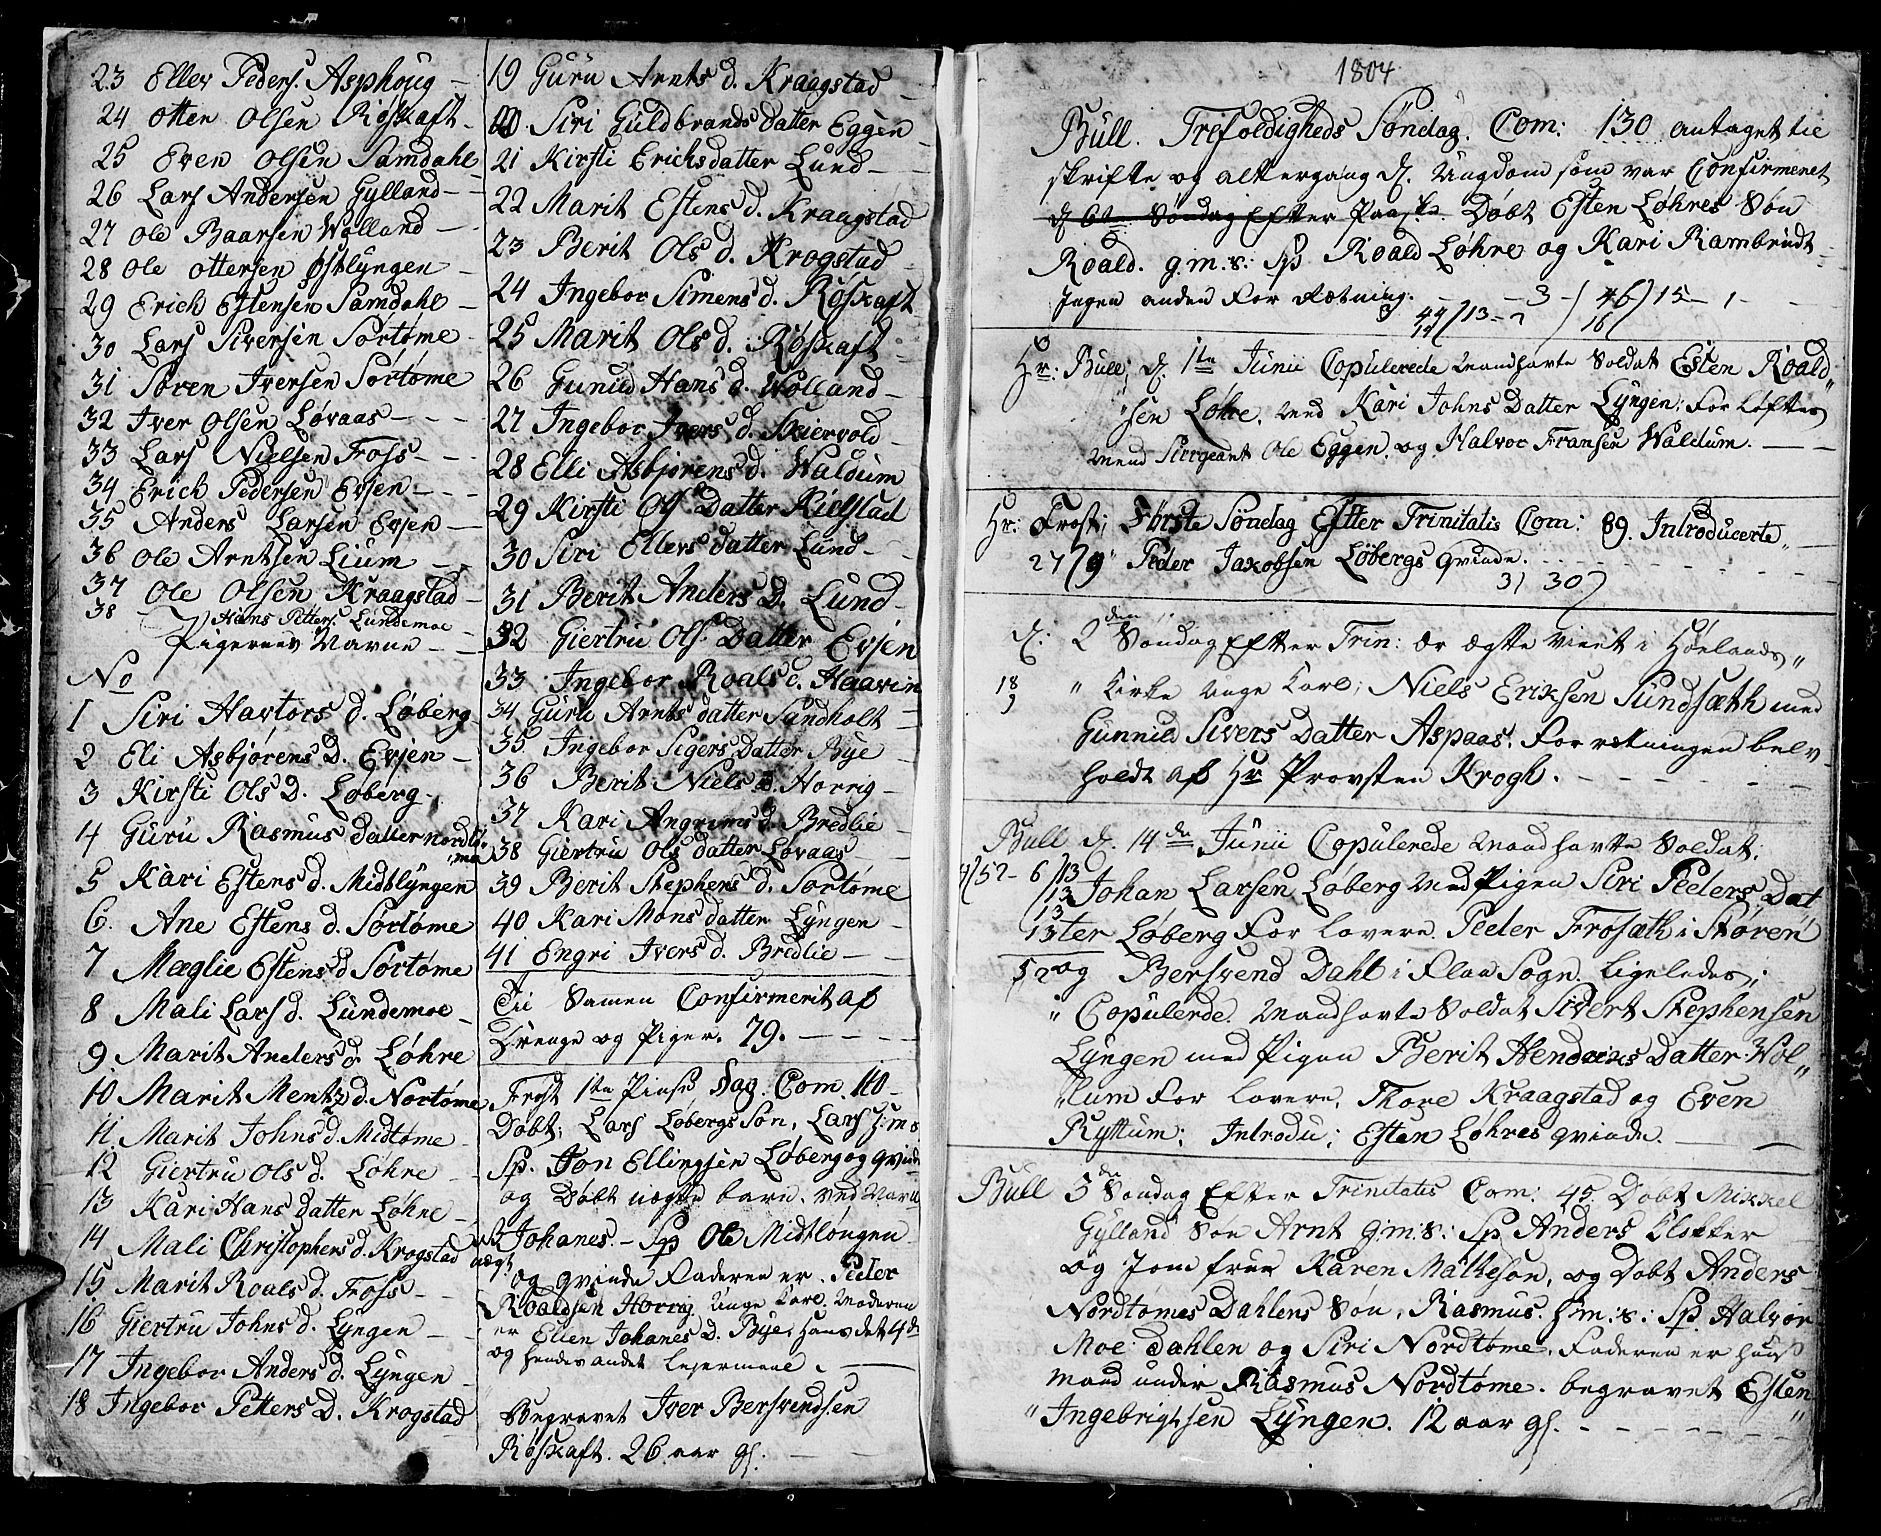 23 Eller Peders. Asphoug
24 Otten Olsen Røskaft
25 Even Olsen Samdahl
26 Lars Andersen Gylland
27 Ole Baarsen Wolland
28 Ole Ottersen Østlyngen
29 Erich Estensen Samdahl
30 Lars Siversen Sørtøme
31 Søren Iversen Sørtøme
32 Iver Olsen Løvaas
33 Lars Nielsen Foss
34 Erich Pedersen Evjen
35 Anders Larsen Evjen
36 Ole Arntsen Lium
37 Ole Olsen Kraagstad
38 Hans Petters. Lundemoe
Pigernes Navne
No
1 Siri Havtors d. Løberg
2 Eli Asbjørens D. Evjen
3 Kirsti Ols D. Løberg
4 Guru Rasmus datter Nordtø-
me
5 Kari Estens d. Midtlyngen
6. Ane Estens d. Sørtøme
7 Maglie Estens d Sørtøme
8 Mali Lars d. Lundemoe
9. Marit Anders d Løhre
10 Marit Mentz d. Nortøme
11. Marit Johns d. Midtøme
12 Giertru Ols d. Løhre
13 Kari Hans datter Løhre
14 Mali Christophers d. Krogstad
15 Marit Roals d. Foss
16 Giertru Johns d. Lyngen
17 Ingebor Anders d. Lyngen
18 Ingebor Petters D. Krogstad
19 Guru Arnts d. Kraagstad
20. Siri Guldbrands datter Eggen
21 Kirsti Erichsdatter Lund
22 Marit Estens d. Kraagstad
23 Berit Ols d. Krogstad
24 Ingebor Simens d. Røskaft
25 Marit Ols d. Røskaft
26 Gunild Hans d. Wolland
27 Ingebor Ivers d. Skiervold
28 Elli Asbjørens d. Waldum
29 Kirsti Ols Datter Kielstad
30 Siri Ellers datter Lund
31 Berit Anders D. Lund
32 Giertru Ols Datter Evjen
33 Ingebor Roals d. Haavin
34 Guru Arnts datter Sandholt
35 Ingebor Sigers Datter Bye
36 Berit Niels D. Horrig
37 Kari Angrims d. Bredlie
38 Giertru Ols datter Løvaas
39 Berit Stephens d. Sørtøme
40 Kari Mons datter Lyngen
41 Engri Ivers d. Bredlie
Til Samen Confirmerit af
Drenge og Piger. 79.
Frost 1te Pinse Dag. Com. 110
Døbt; Lars Løbergs Søn, Lars H:m:s
Sp. Jon Ellingsen Løberg og Qvinde
og Døbt uægte barn. ved Navn
Johanes. Sp Ole Midtløngen
og Qvinde Faderen er. Peder
Roaldsen Horrig Unge Karl. Moderen
er Elien Johanes D. Bye, hans det 4de
og hendes andet Leiermaal.
Begravet Iver Bersvendsen
Røskaft. 26 aar gl.
1804
Bull. Trefoldigheds Søndag. Com: 130 antaget til
skrifte og altergang d. Ungdom som var Confirmeret
d 6te Søndag Efter Paaske. Døbt Esten Løhres Søn
Roald. g.m.s: Sp Roald Løhre og Kari Rambrudt
Ingen anden For Rætning. 3 46 15 1
44 13 16
Hr: Bull; d. 1te Junii Copulerede Mandhavte Soldat Esten Roald
sen Løhre. Med Kari Johns Datter Lyngen; For Løfter
Mend Seirgeant Ole Eggen og Halvor Fransen Waldum.
Hr: Frost; Første Søndag Efter Trinitatis Com: 89. Introducerte
27 9 Peder Jakobsen Løbergs Qvinde.
3 30
d: 2den Søndag Efter Trin: Er Egte Viet i Høelands
18 Kirke Unge Karl; Niels Eriksen Sundsæth med
Gunnild Sivers Datter Aspaas. Forretningen blev
holdt af Hr Provsten Krogh.
Bull d. 14de Junii Copulerede Mandhavte Soldat.
52 6 13
13 Johan Larsen Løberg Med Pigen Siri Peders Dat
13
13 ter Løberg For Lovere. Peder Frosæth i Støren
52 og Bersvend Dahl i Flaa Sogn. Ligeledes;
Copulerde. Mandhavte Soldat Sivert Stephensen
Lyngen med Pigen Berit Hendriks Datter Wol
lum For Lovere, Thore Kraagstad og Even
Ryttum; Introdu; Esten Løhres Qvinde.
Bull 3de Søndag Efter Trinitatis Com: 45. Døbt Mikkel
Gylland Søn Arnt g.m.s: Sp Anders Klokker
og Jomfrue Karen Matheson, og Døbt Anders
Nordtømes Dahlens Søn, Rasmus. H.m:s: Sp. Halvor
Moe Dahlen og Siri Nordtøme. Faderen er Huus
mand under Rasmus Nordtøme. begravet Esten
Ingebrigtsen Lyngen. 12 aar gl.